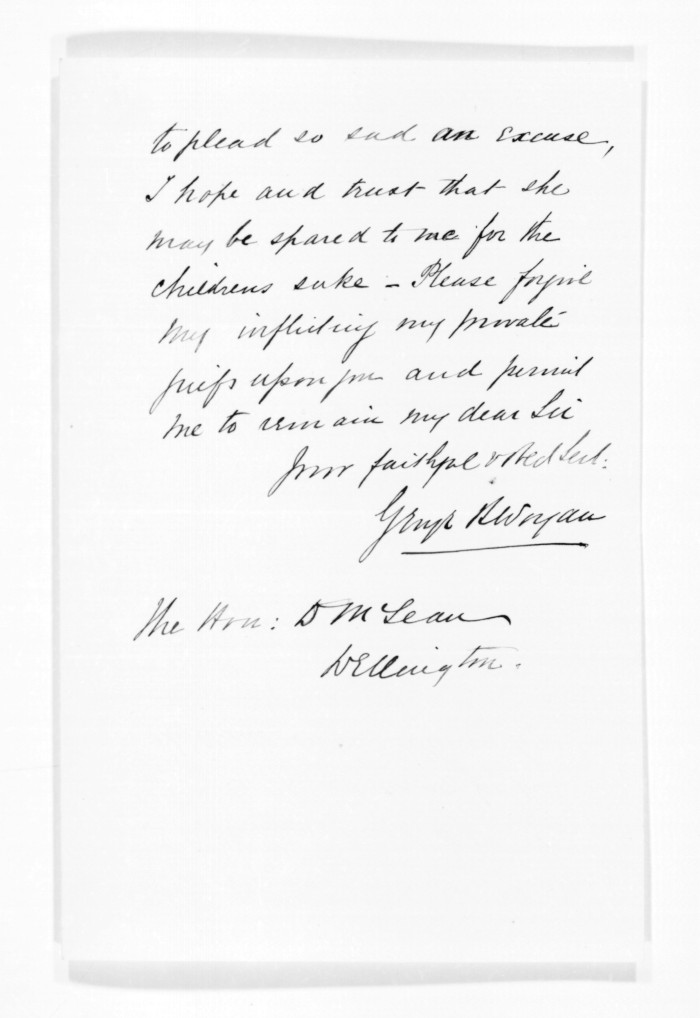 to plead so sad an excuse,
I hope and trust that she
may be spared to me for the
childrens sake - Please forgive
my inflicting my private
griefs upon you and permit
me to remain my dear Sir
your faithful & obed Sert.
George Worgan
The Hon: D McLean
Wellington.